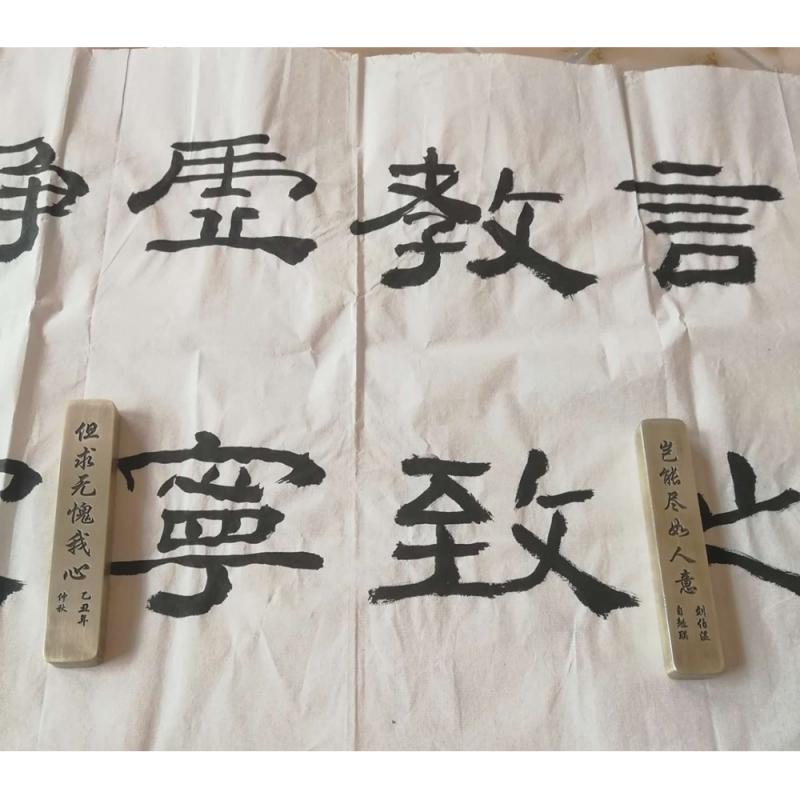 言之
教致
虚寧
岂能尽如人意
刘伯温
自勉联
但求无愧我心
乙丑年
仲秋